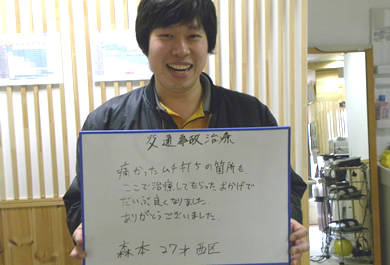 交通事故治療
痛かったムチ打ちの箇所も
ここで治療してもらったおかげで
だいぶ良くなりました。
ありがとうございました。
森本 27才 西区